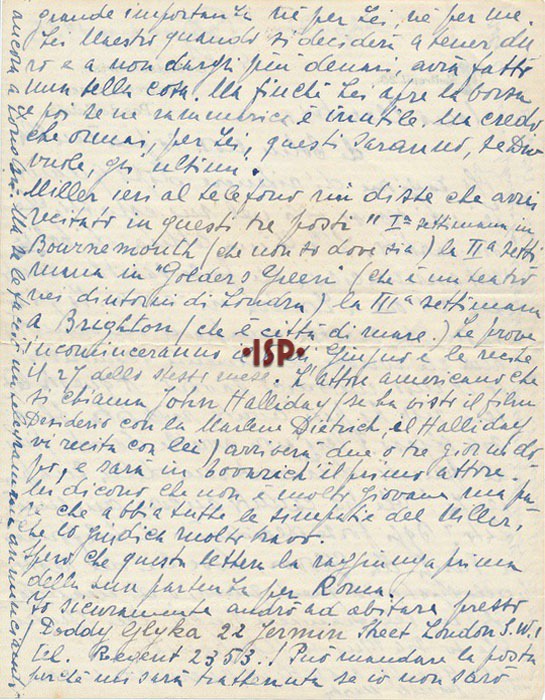 grande importanza nè per Lei, nè per me.
Lei Maestro quando si deciderà a tener du
ro e a non dargli più denari avrà fatto
una bella cosa. Ma finchè Lei apre la borsa
e poi se ne rammarica è inutile. Ma credo
che ormai, per Lei, questi saranno, se Dio
vuole, gli ultimi.
Miller ieri al telefono mi disse che avrei
recitato in questi tre posti "Iª settimana in
Bournemouth (che non so dove sia) la IIª setti
mana in "Golders Green" (che è un teatro
nei dintorni di Londra) la IIIª settimana
a Brighton (che è città di mare.) Le prove
incominceranno Giugno e le recite
il 27 dello stesso mese. L'attore americano che
si chiama John Halliday (se ha visto il film
Desiderio con la Marlene Dietrich, el Halliday
vi recita con lei) arriverà due o tre giorni do
po, e sarà in il primo attore.
Mi dicono che non è molto giovane ma pa
re che abbia tutte le simpatie del Miller,
che lo giudica molto bravo.
Spero che questa lettera la raggiunga prima
della sua partenza per Roma.
Io sicuramente andrò ad abitare presso
(Doddy Glyka 22 Jermin Street London S.W.1
tel. Regent 2353.) Può mandare la posta
perchè mi sarà trattenuta se io non sarò
ancora a Londra. Ma se le faccio un telegramma annunciando
·ISP·